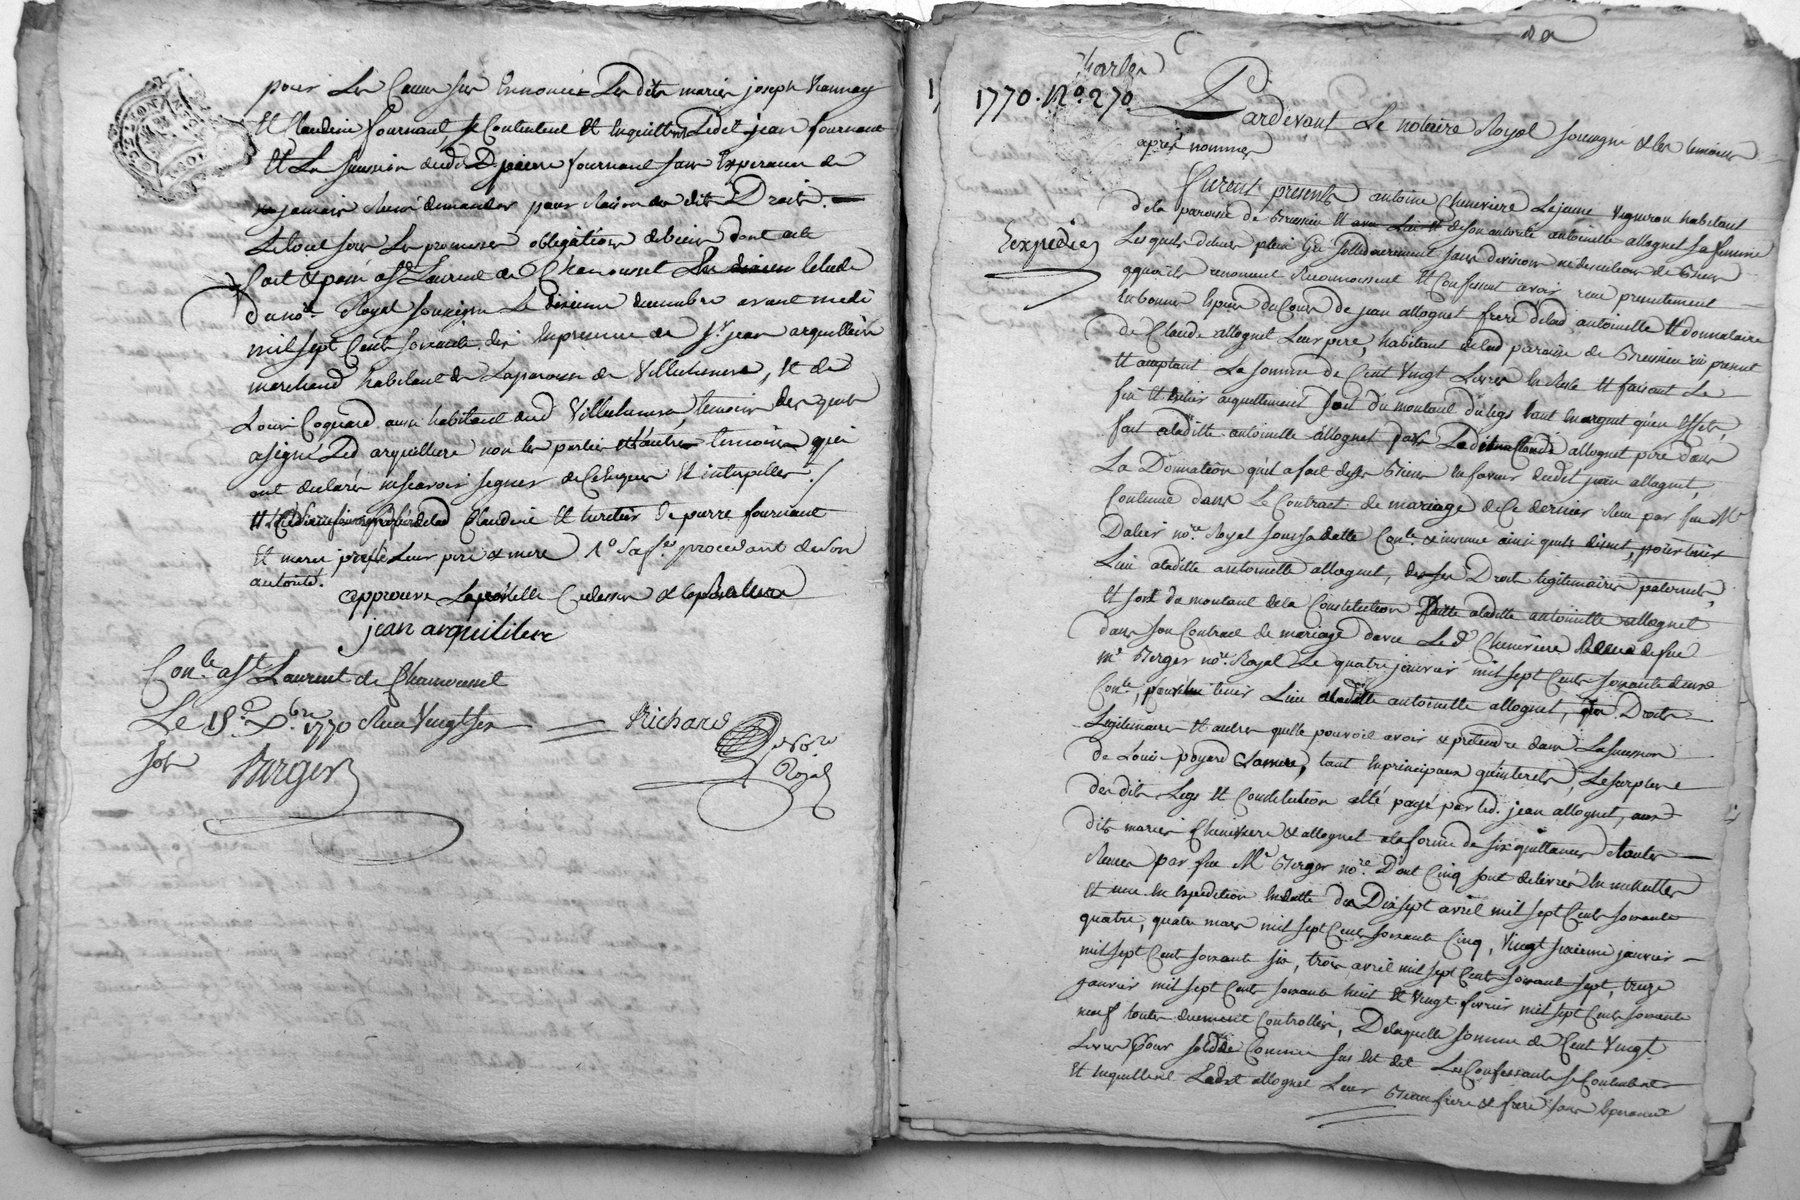 pour les Causes sus Ennoncées Lesdits mariés joseph
Et Claudine fournand se Contentent Et En quittent Ledit jean fournand
Et la succession dudit pierre fournand sans Esperance de
jamais Rien demander pour Raison des dits Droits.
Le tout sous les promesses obligations de biens dont acte
fait & passé à St Laurent de Chamousset Etude
du no.re Royal soussigné Le dixieme decembre avant midi
mil sept Cents soixante dix En presence de Sr jean arquilliere
marchand habitant de La paroisse de Villechenève, Et de
Louis Coquard aussi habitant dud Villechenève temoins desquels
a signé Led arquilliere non les parties temoin qui
ont declaré ne scavoir signer de Ce Enquis Et interpellés ./.
Claudine Et heritier de pierre fournand
Et marie leur pere & mere procedant de Son
autorité.
approuvé
jean arquilliere
Con.lé à St Laurent de Chamousset
Le 18.e Xbre 1770 Reçu Vingt six
Richard
no.re
Royal
Sols Berger
1770. No. 270.
Expedié
Pardevant Le notaire Royal soussigné & les temoins
après nommés
Furent presents antoine Chenevière Lejeune Vigneron habitant
de la paroisse de Brussieu Et de son autorité antoinette allognet sa femme
Lesquels de leur plein Gré sollidairement sans division ne discution de Biens
a quoi ils renoncent Reconnoissent Et Confessent avoir reçu presentement
En bonnes Especes du Cours de jean allognet frere de lad. antoinette Et donnataire
de Claude allognet Leur pere, habitant de lad paroisse de Brussieu ici present
Et acceptant La somme de Cent Vingt Livres En Reste Et faisant Le
fait à laditte antoinette allognet allognet pere dans
La Donnation qu'il a fait de ses Biens En faveur dudit jean allognet,
Contenue dans Le Contract de mariage de Ce dernier Reçu par feu Me
Dalier no.re Royal sous sa datte Con.lé
Lieu à laditte antoinette allognet, de ses Droits legitimaires paternels,
Et soit du montant de la Constitution faitte à laditte antoinette allognet
dans son Contract de mariage d'avec Le d. Chenevière Reçu de feu
Me Berger no.re Royal Le quatre janvier mil sept Cents soixante deux
Con.lé, pour tenir Lieu à laditte antoinette allognet, Droits
Legitimaires Et autres qu'elle pouvoit avoir & pretendre dans La succession
de Louise poyard sa mere, tant En principaux qu'interets, Le surplus
desdits Legs Et Constitution a été payé par led. jean allognet, aux
dits mariés Chenevière & allognet à la forme de six quittances toutes
Reçues par feu Me Berger no.re Dont Cinq sont delivrées En minuttes
Et une En Expedition En datte du Dix sept avril mil sept Cents soixante
quatre, quatre mars mil sept Cents soixante Cinq, Vingt sixieme janvier
mil sept Cents soixante six, trois avril mil sept Cents soixante sept, treize
janvier mil sept Cents soixante huit Et Vingt fevrier mil sept Cents soixante
neuf toutes duement Controllées, De laquelle somme de Cent Vingt
Livres pour solde Comme sus Est dit Les Confessants se Contentent
Et En quittent Ledit allognet Leur Beaufrere & frere sans Esperance